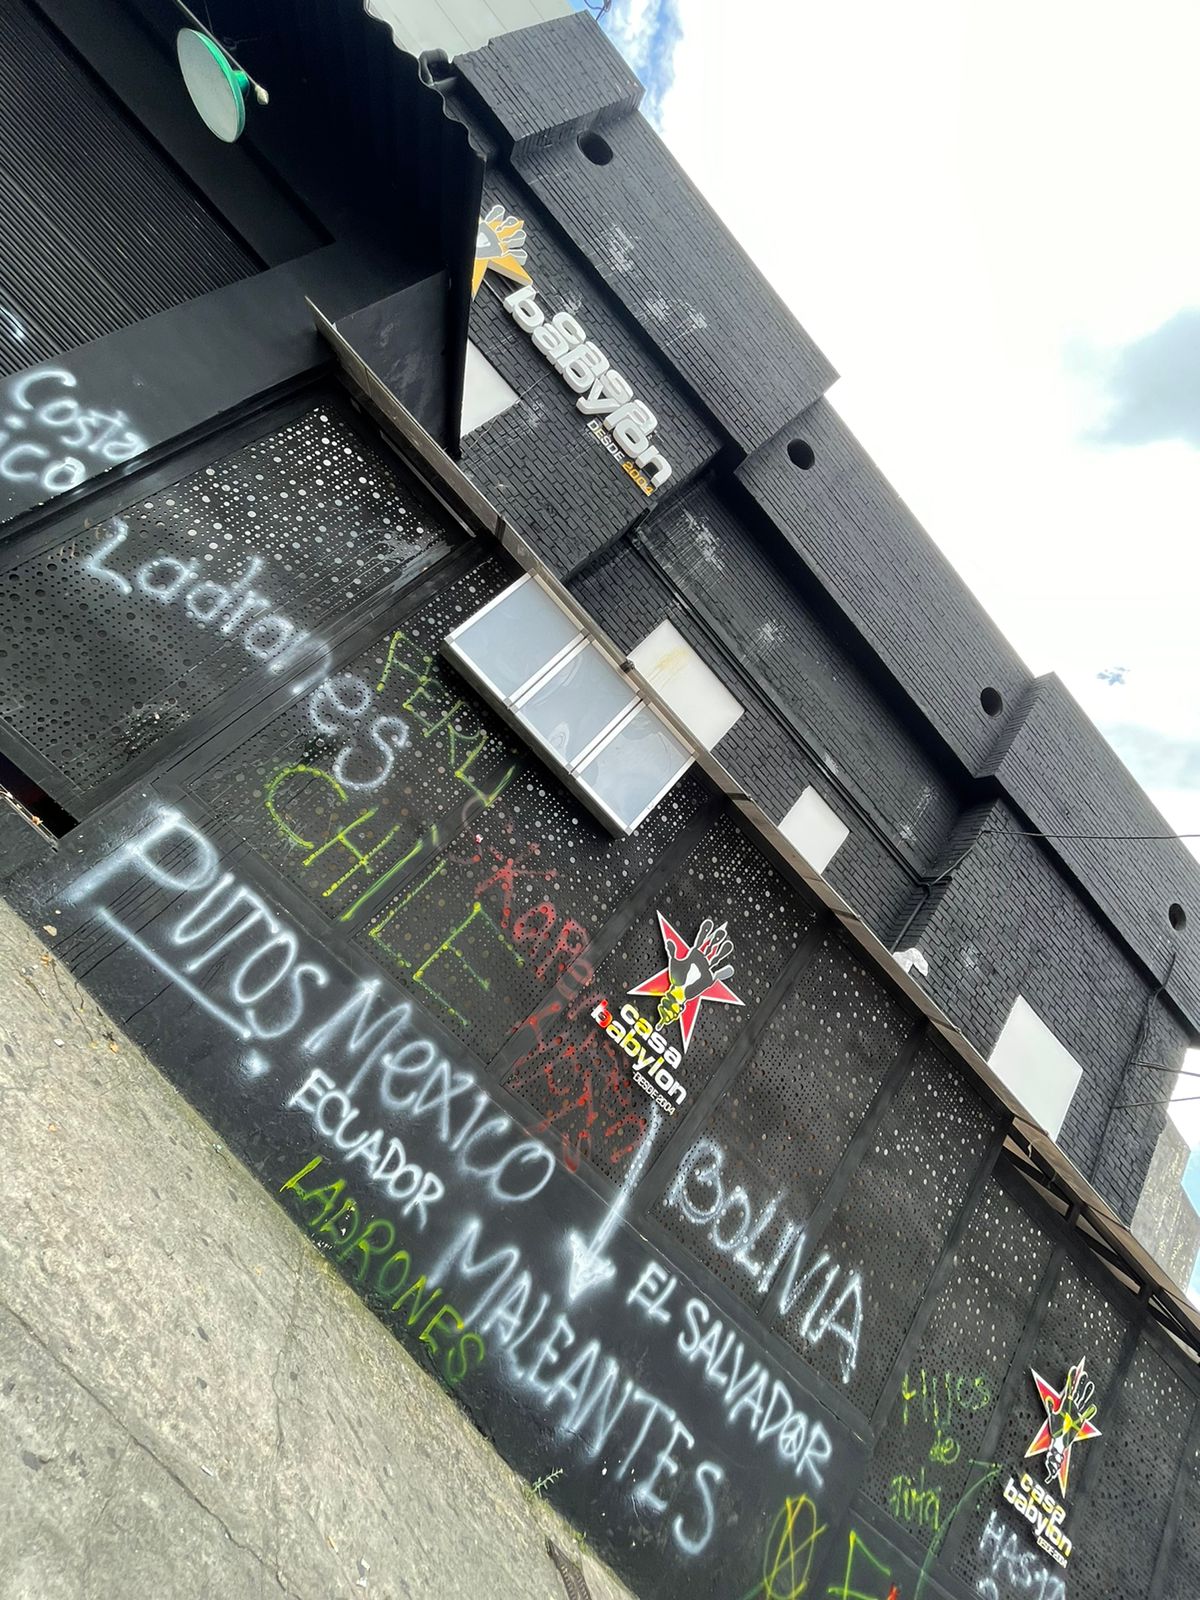 casa
babylon
DESDE 2004
Costa
Ladrones
PERU
CHILE
casa
babylon
DESDE 2004
PUTOS
MexICO
BOLIVIA
ECUADOR
EL SALVADOR
LADRONES
MALEANTES
Hijos
de
casa
babylon
DESDE 2004
HASTA